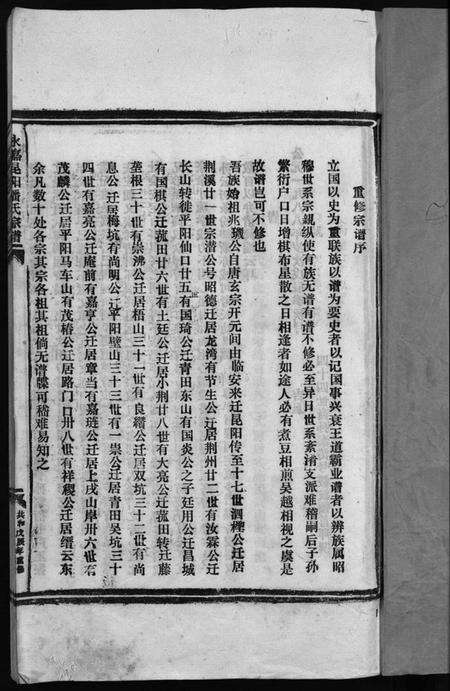 重修宗谱序
立国以史为重联族以谱为要史者以记国事兴衰王道霸业谱者以辨族属昭
穆世系宗親纵使有族无谱有谱不修必至异日世系紊淆支派难稽嗣后子孙
繁衍户口日增棋布星散之日相逢者如途人必有煮豆相煎吴越相视之虞是
故谱岂可不修也
吾族始祖兆璣公自唐玄宗开元间由临安来迁昆阳传至十七世泗檉公迁居
荆溪廿一世宗潜公号昭德迁居龙湾有节生公迁居荆州廿二世有汝霖公迁
长山转徙平阳仙口廿五世有国琦公迁青田东山有国炎公之子廷用公迁昌城
有国棋公迁菰田廿六世有士廷公迁居小荆廿八世有大亮公迁菰田转迁藤
垄根三十世有崇沸公迁居梧山三十一世有良繒公迁居双坑三十二世有尚
息公迁居梅坑有尚明公迁平阳壁山三十三世有一崇公迁居青田吴坑三十
四世有嘉亮公迁庵前有嘉亨公迁居章当有嘉琏公迁居上戌山岸卅六世有
茂麟公迁居平阳马车山有茂椿公迁居路门口卅八世有祥稷公迁居缙云东
余凡数十处各宗其宗各祖其祖倘无谱牒可稽难易知之
永嘉昆阳潘氏宗谱
共和戊辰年重修